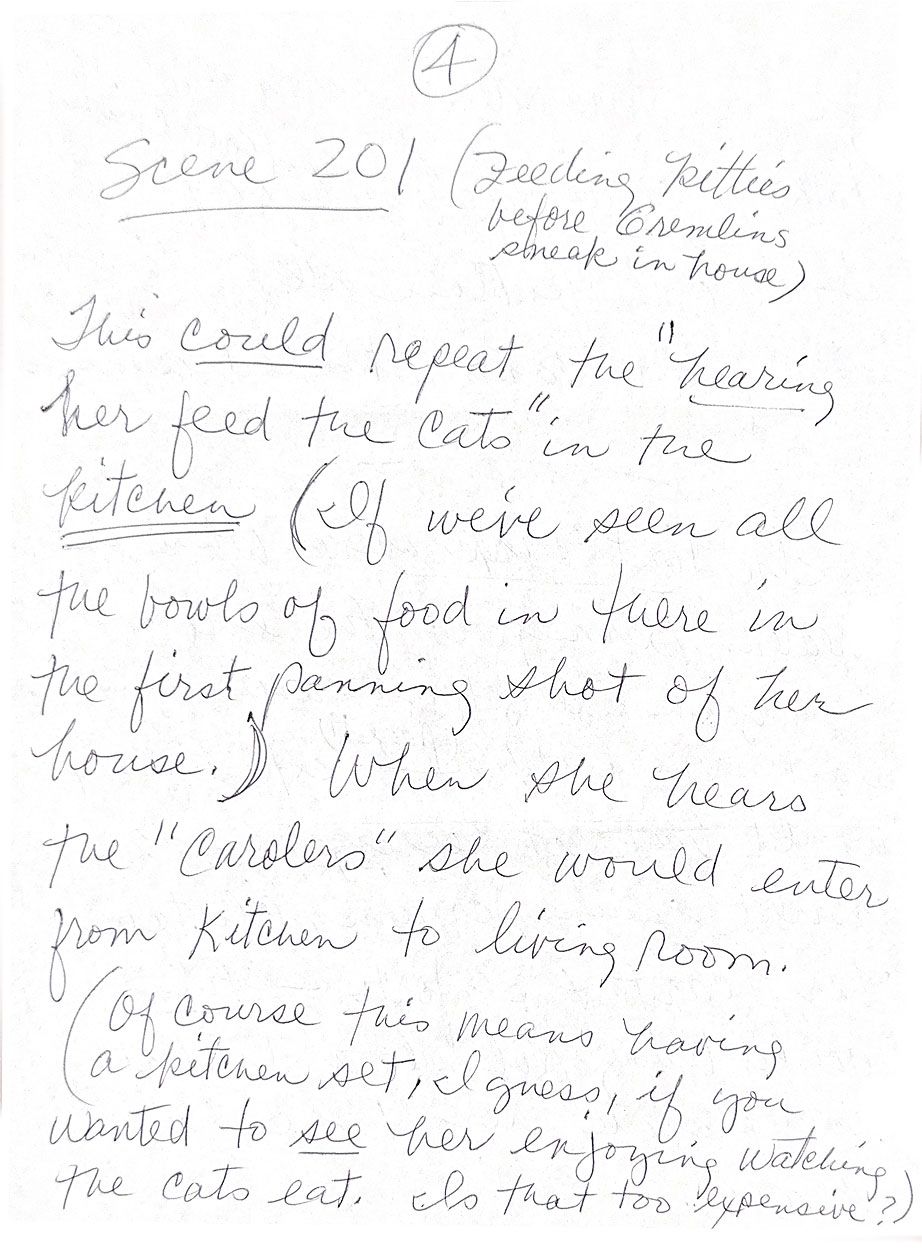 4
Scene 201 (Feeding kitties
before Gremlins
sneak in house)
This could repeat the "hearing
her feed the cats" in the
kitchen (If we've seen all
the bowls of food in there in
the first panning shot of her
house.) When she hears
the "Carolers" she would enter
from Kitchen to living room.
(Of course this means having
a kitchen set, I guess, if you
wanted to see her enjoying watching
the cats eat. Is that too expensive?)